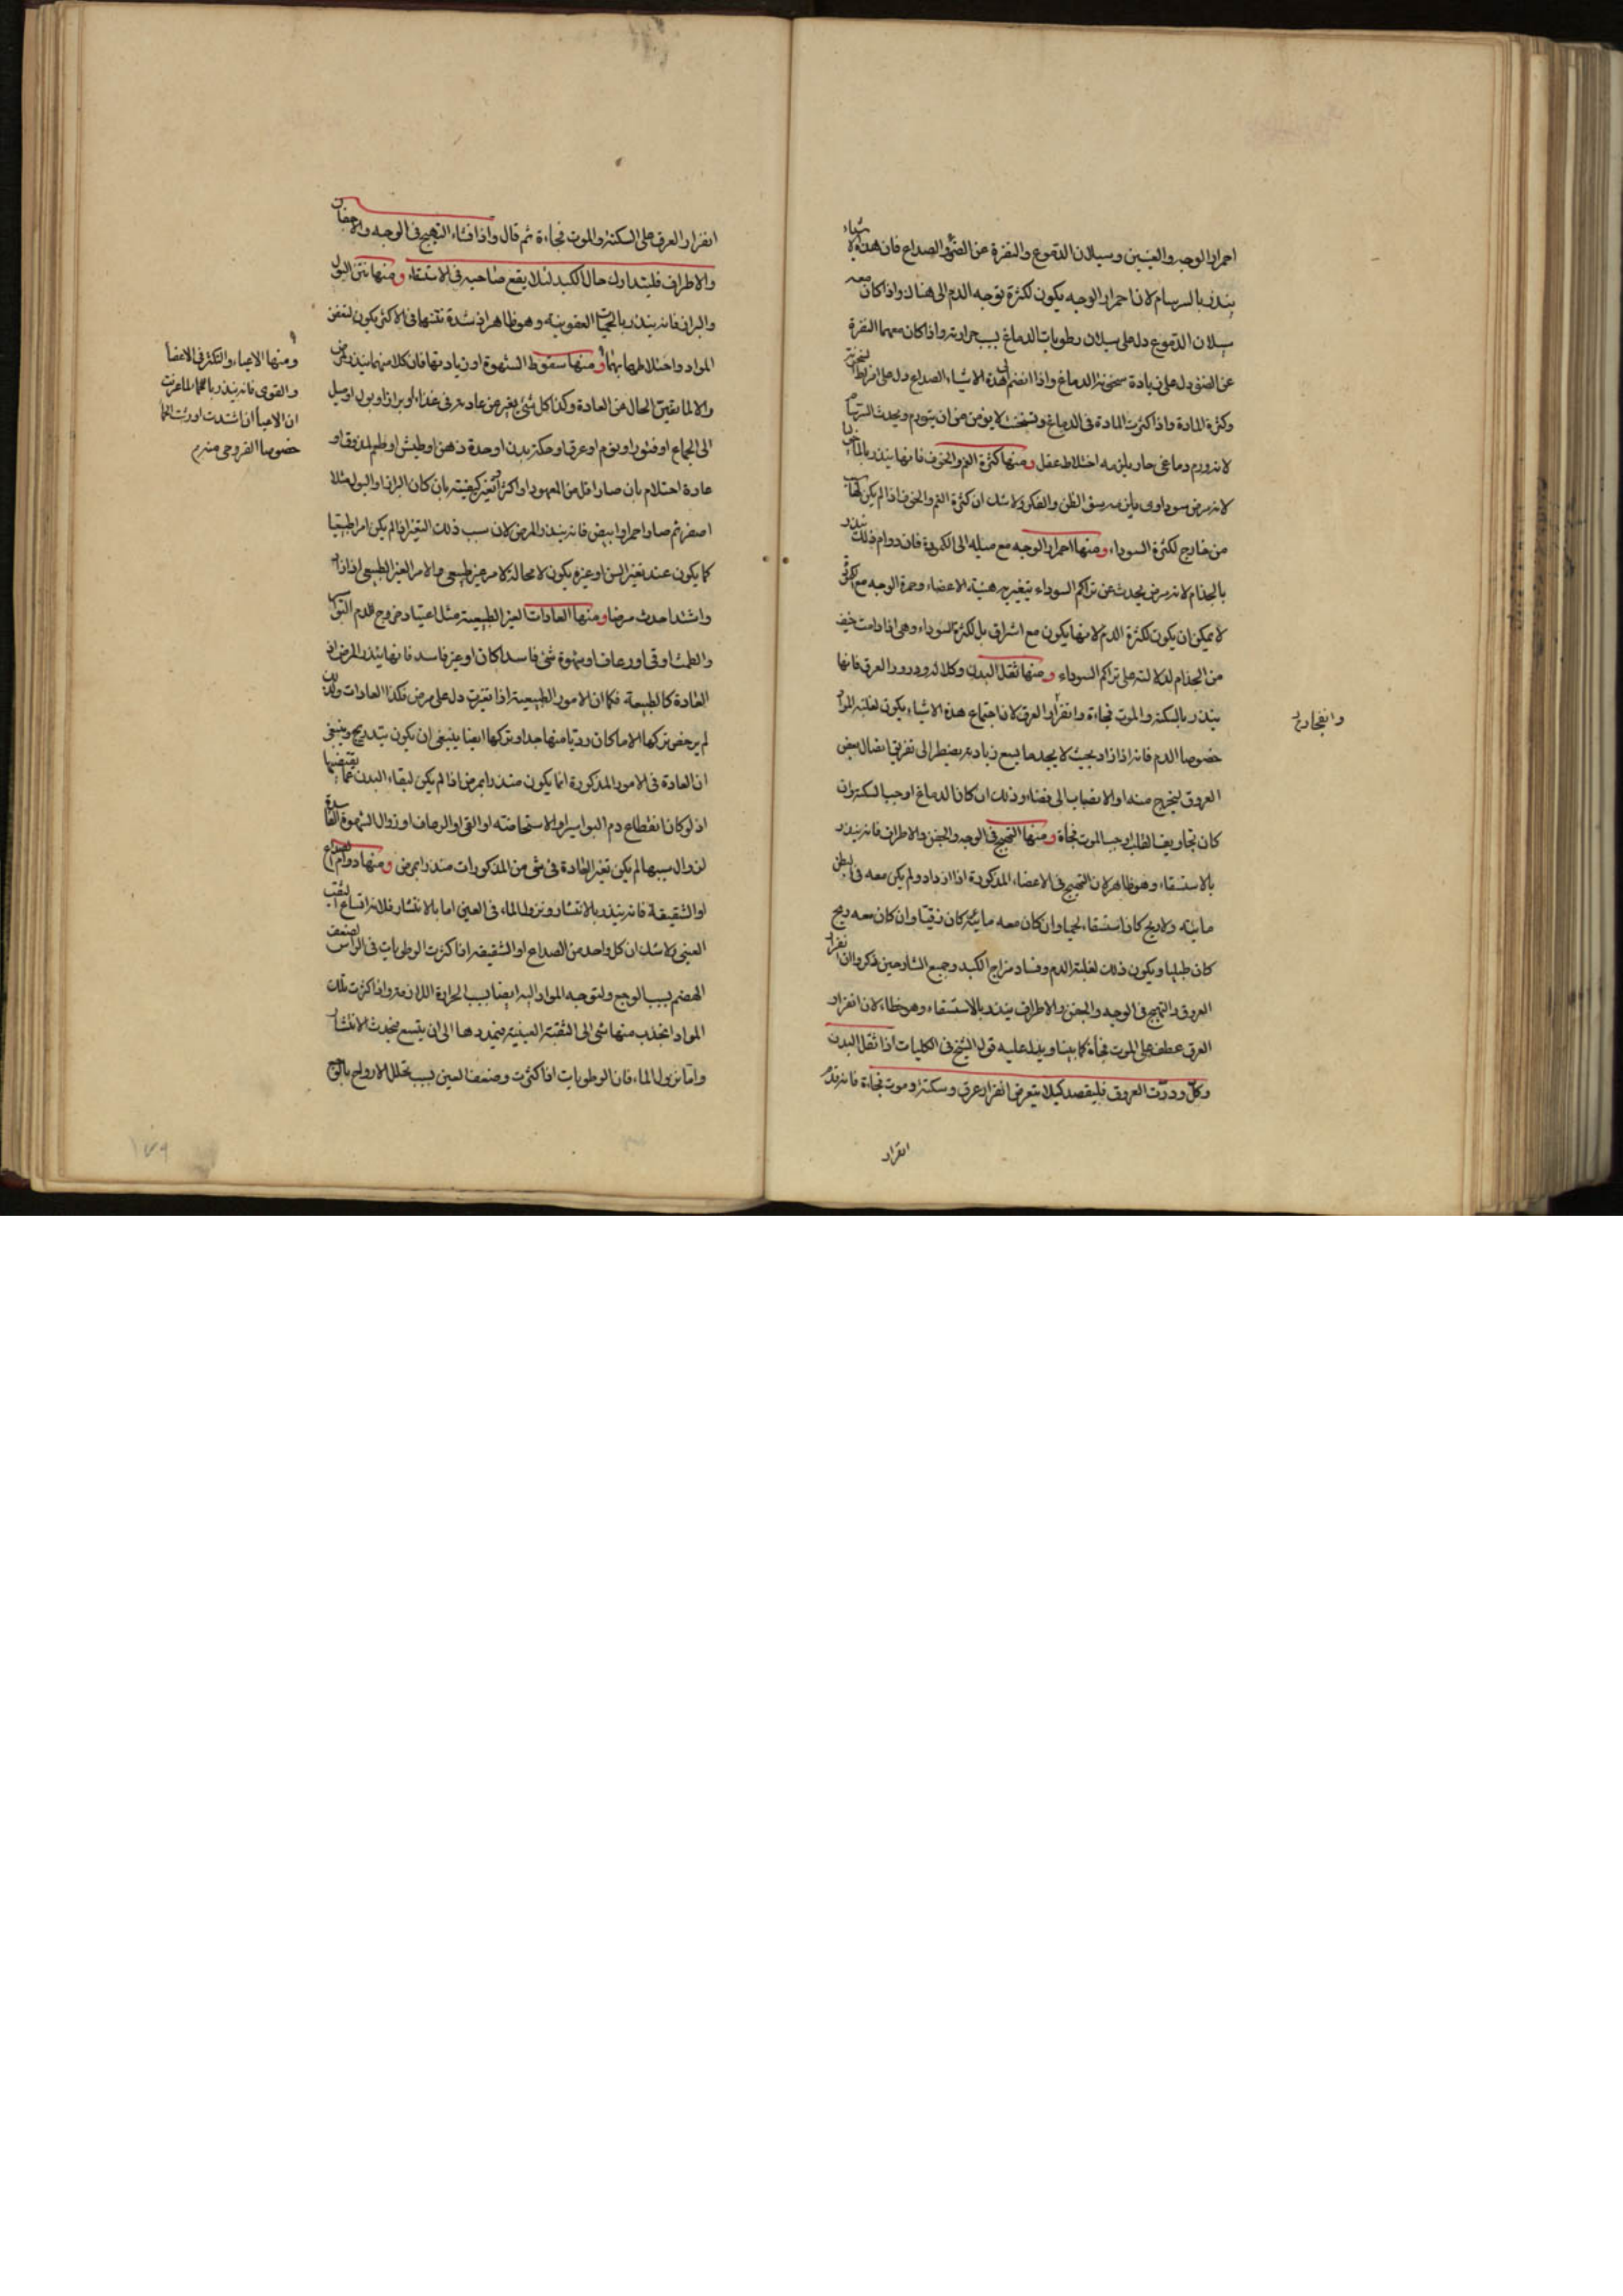 احمرار الوجه والعينين وسيلان الدموع والنفرة عن الضوء والصداع فان هذه الاشياء
ينذر بالسرسام لان احمرار الوجه يكون لكثرة توجه الدم الى هناك واذا كان معه
سيلان الدموع دل على سيلان رطوبات الدماغ بسبب حرارته واذا كان معهما النفرة
عن الضوء دل على زيادة سخونة الدماغ واذا انضم الى هذه الاشياء الصداع دل على افراط سخونته
وكثرة المادة واذا كثرت المادة فى الدماغ وتسخنت لا يؤمن من ان يتورم ويحدث السرسام
لانه ورم دماغى حار يلزمه اختلاط عقل ومنها كثرة الغم والخوف فانها ينذر بالماليخوليا
لانه مرض سوداوى يلزمه سوء الظن والفكر ولا شك ان كثرة الغم والخوف اذا لم يكن لهما سبب
من خارج لكثرة السوداء ومنها احمرار الوجه مع ميله الى الكمودة فان دوام ذلك ينذر
بالجذام لانه مرض يحدث عن تراكم السوداء يتغير به هيئة الاعضاء وحمرة الوجه مع الكمودة
لا يمكن ان يكون لكثرة الدم لانها يكون مع اشراق بل لكثرة السوداء وهى اذا دامت خيف
من الجذام لدلالته على تراكم السوداء ومنها ثقل البدن وكلاله ودرور العرق فانها
ينذر بالسكتة والموت فجاءة وانفزار العرق لان اجتماع هذه الاشياء يكون لغلبة المواد
خصوصا الدم فانه اذا زاد بحيث لا يجد ما يسع زيادته يضطر الى تفريق اتصال بعض
العروق ليخرج منه او الانصباب الى فضاء وذلك ان كان الدماغ اوجب السكتة وان
كان تجاويف القلب اوجب الموت فجاة ومنها التهبج فى الوجه والجفن والاطراف فانه ينذر
بالاستسقاء وهو ظاهر لان التهبج فى الاعضاء المذكورة اذا ازداد ولم يكن معه فى البطن
مائية ولا ريح كان استسقاء لحميا وان كان معه مائية كان زقيا وان كان معه ريح
كان طبليا ويكون ذلك لغلبة الدم وفساد مزاج الكبد وجميع الشارحين ذكروا ان انفزار
العروق والتهبج فى الوجه والجفن والاطراف ينذر بالاستسقاء وهو خطاء لان انفزار
العرق عطف على الموت فجأة كما بينا ويدل عليه قول الشيخ فى الكليات اذا ثقل البدن
وكل ودرت العروق فليفصد كيلا يتعرض انفزار عرق وسكتة وموت فجاءة فانه قدم
انفزار
وانفجاره
انفزار العرق على السكتة والموت فجاءة ثم قال واذا فشاء التهبج فى الوجه والاجفان
والاطراف فليتدارك حال الكبد لئلا يقع صاحبه فى الاستسقاء ومنها نتن البول
والبراز فانه ينذر بالحميات العفونية وهو ظاهر اذ شدة نتنها فى الاكثر يكون لتعفن
المواد واختلاطها بهما ومنها سقوط الشهوة او زيادتها فان كلا منهما ينذر بمرض
والا لما تغير الحال عن العادة وكذا كل شئ يغير عن عادته فى غذاء او براز او بول او ميل
الى الجماع او فتور او نوم او عرق او حكة بدن او حدة ذهن او طيش او طعم المذوق او
عادة احتلام بان صار اقل من المعهود او اكثر او تغير كيفيته بان كان البراز او البول مثلا
اصفر ثم صار احمر او ابيض فانه ينذر بالمرض لان سبب ذلك التغير اذا لم يكن امرا طبيعيا
كما يكون عند تغير السن او غيره يكون لا محالة لامر غير طبيعى والامر الغير الطبيعى اذا زاد
واشتد احدث مرضا ومنها العادات الغير الطبيعية مثل اعتياد خروج الدم البواسير
والطمث او قئ او رعاف او شهوة شئ فاسد كان او غير فاسد فانها ينذر بالمرض اذ
العادة كالطبيعة فكما ان الامور الطبيعية اذا تغيرت دل على مرض فكذا العادات ولذلك
لم يرخص تركها الا ما كان رديا منها جدا وتركها ايضا ينبغى ان يكون بتدريج وينبغى
ان العادة فى الامور المذكورة انما يكون منذرا بمرض اذا لم يكن لبقاء البدن عما يقتضيها
اذ لو كان انقطاع دم البواسير او الاستحاضة او القئ او الرعاف او زوال الشهوة الفاسدة
لزوال سببها لم يكن تغير العادة فى شئ من المذكورات منذرا بمرض ومنها دوام الصداع
او الشقيقة فانه ينذر بالانتشار ونزول الماء فى العين اما بالانتشار فلانه اتساع الثقب
العنبى ولا شك ان كل واحد من الصداع او الشقيقة اذا كثرت الرطوبات فى الراس لضعف
الهضم بسبب الوجع ولتوجه المواد اليه ايضا بسبب الحرارة اللازمة واذا كثرت تلك
المواد انجذب منها شئ الى الثقبة العينية فيمددها الى ان يتسع فيحدث الانتشار
واما نزول الماء فان الرطوبات اذا كثرت وضعف العين بسبب تحلل الارواح بالوجع
ومنها الاعياء والتكسر فى الاعضاء
والقوى فانه ينذر بالحمى لما عرفت
ان الاعياء اذا اشتدت اورثت الحمى
خصوصا القروحى منه
١٧٩